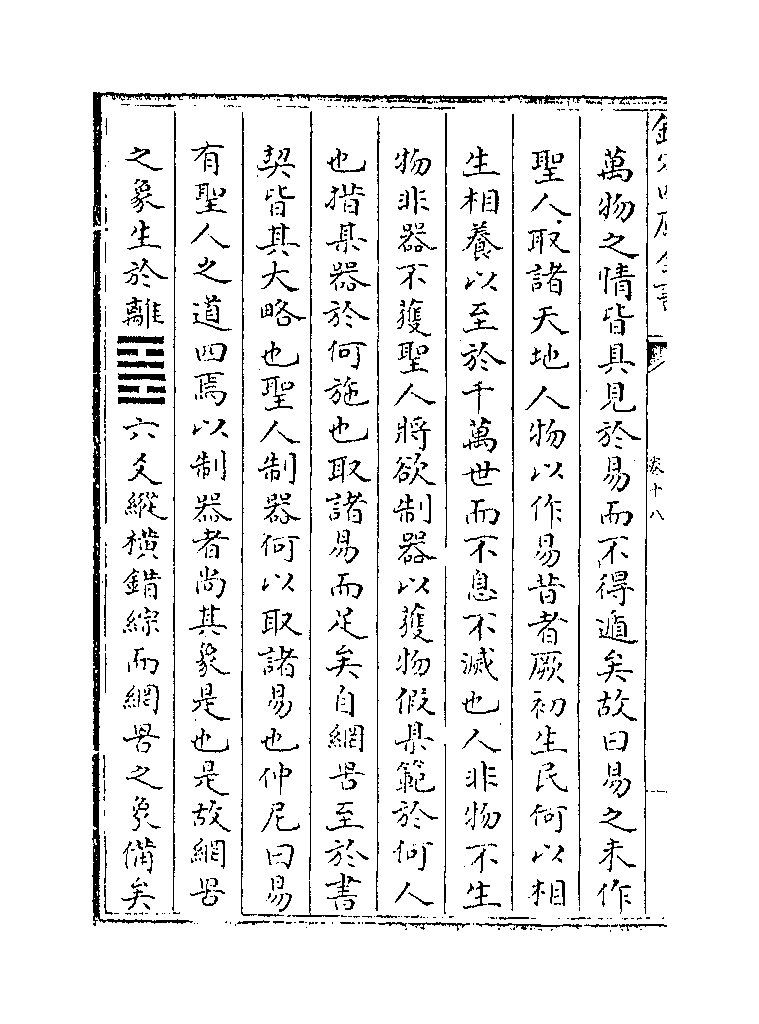 欽定四庫全書 卷十八
萬物之情皆具見於易而不得遁矣故曰易之未作
聖人取諸天地人物以作易昔者厥初生民何以相
生相養以至於千萬世而不息不滅也人非物不生
物非器不獲聖人將欲制器以獲物假某範於何人
也揩某器於何施也取諸易而足矣自網罟至於書
契皆其大略也聖人制器何以取諸易也仲尼曰易
有聖人之道四焉以制器者尚其象是也是故網罟
之象生於離䷝六爻縱横錯綜而網罟之象備矣